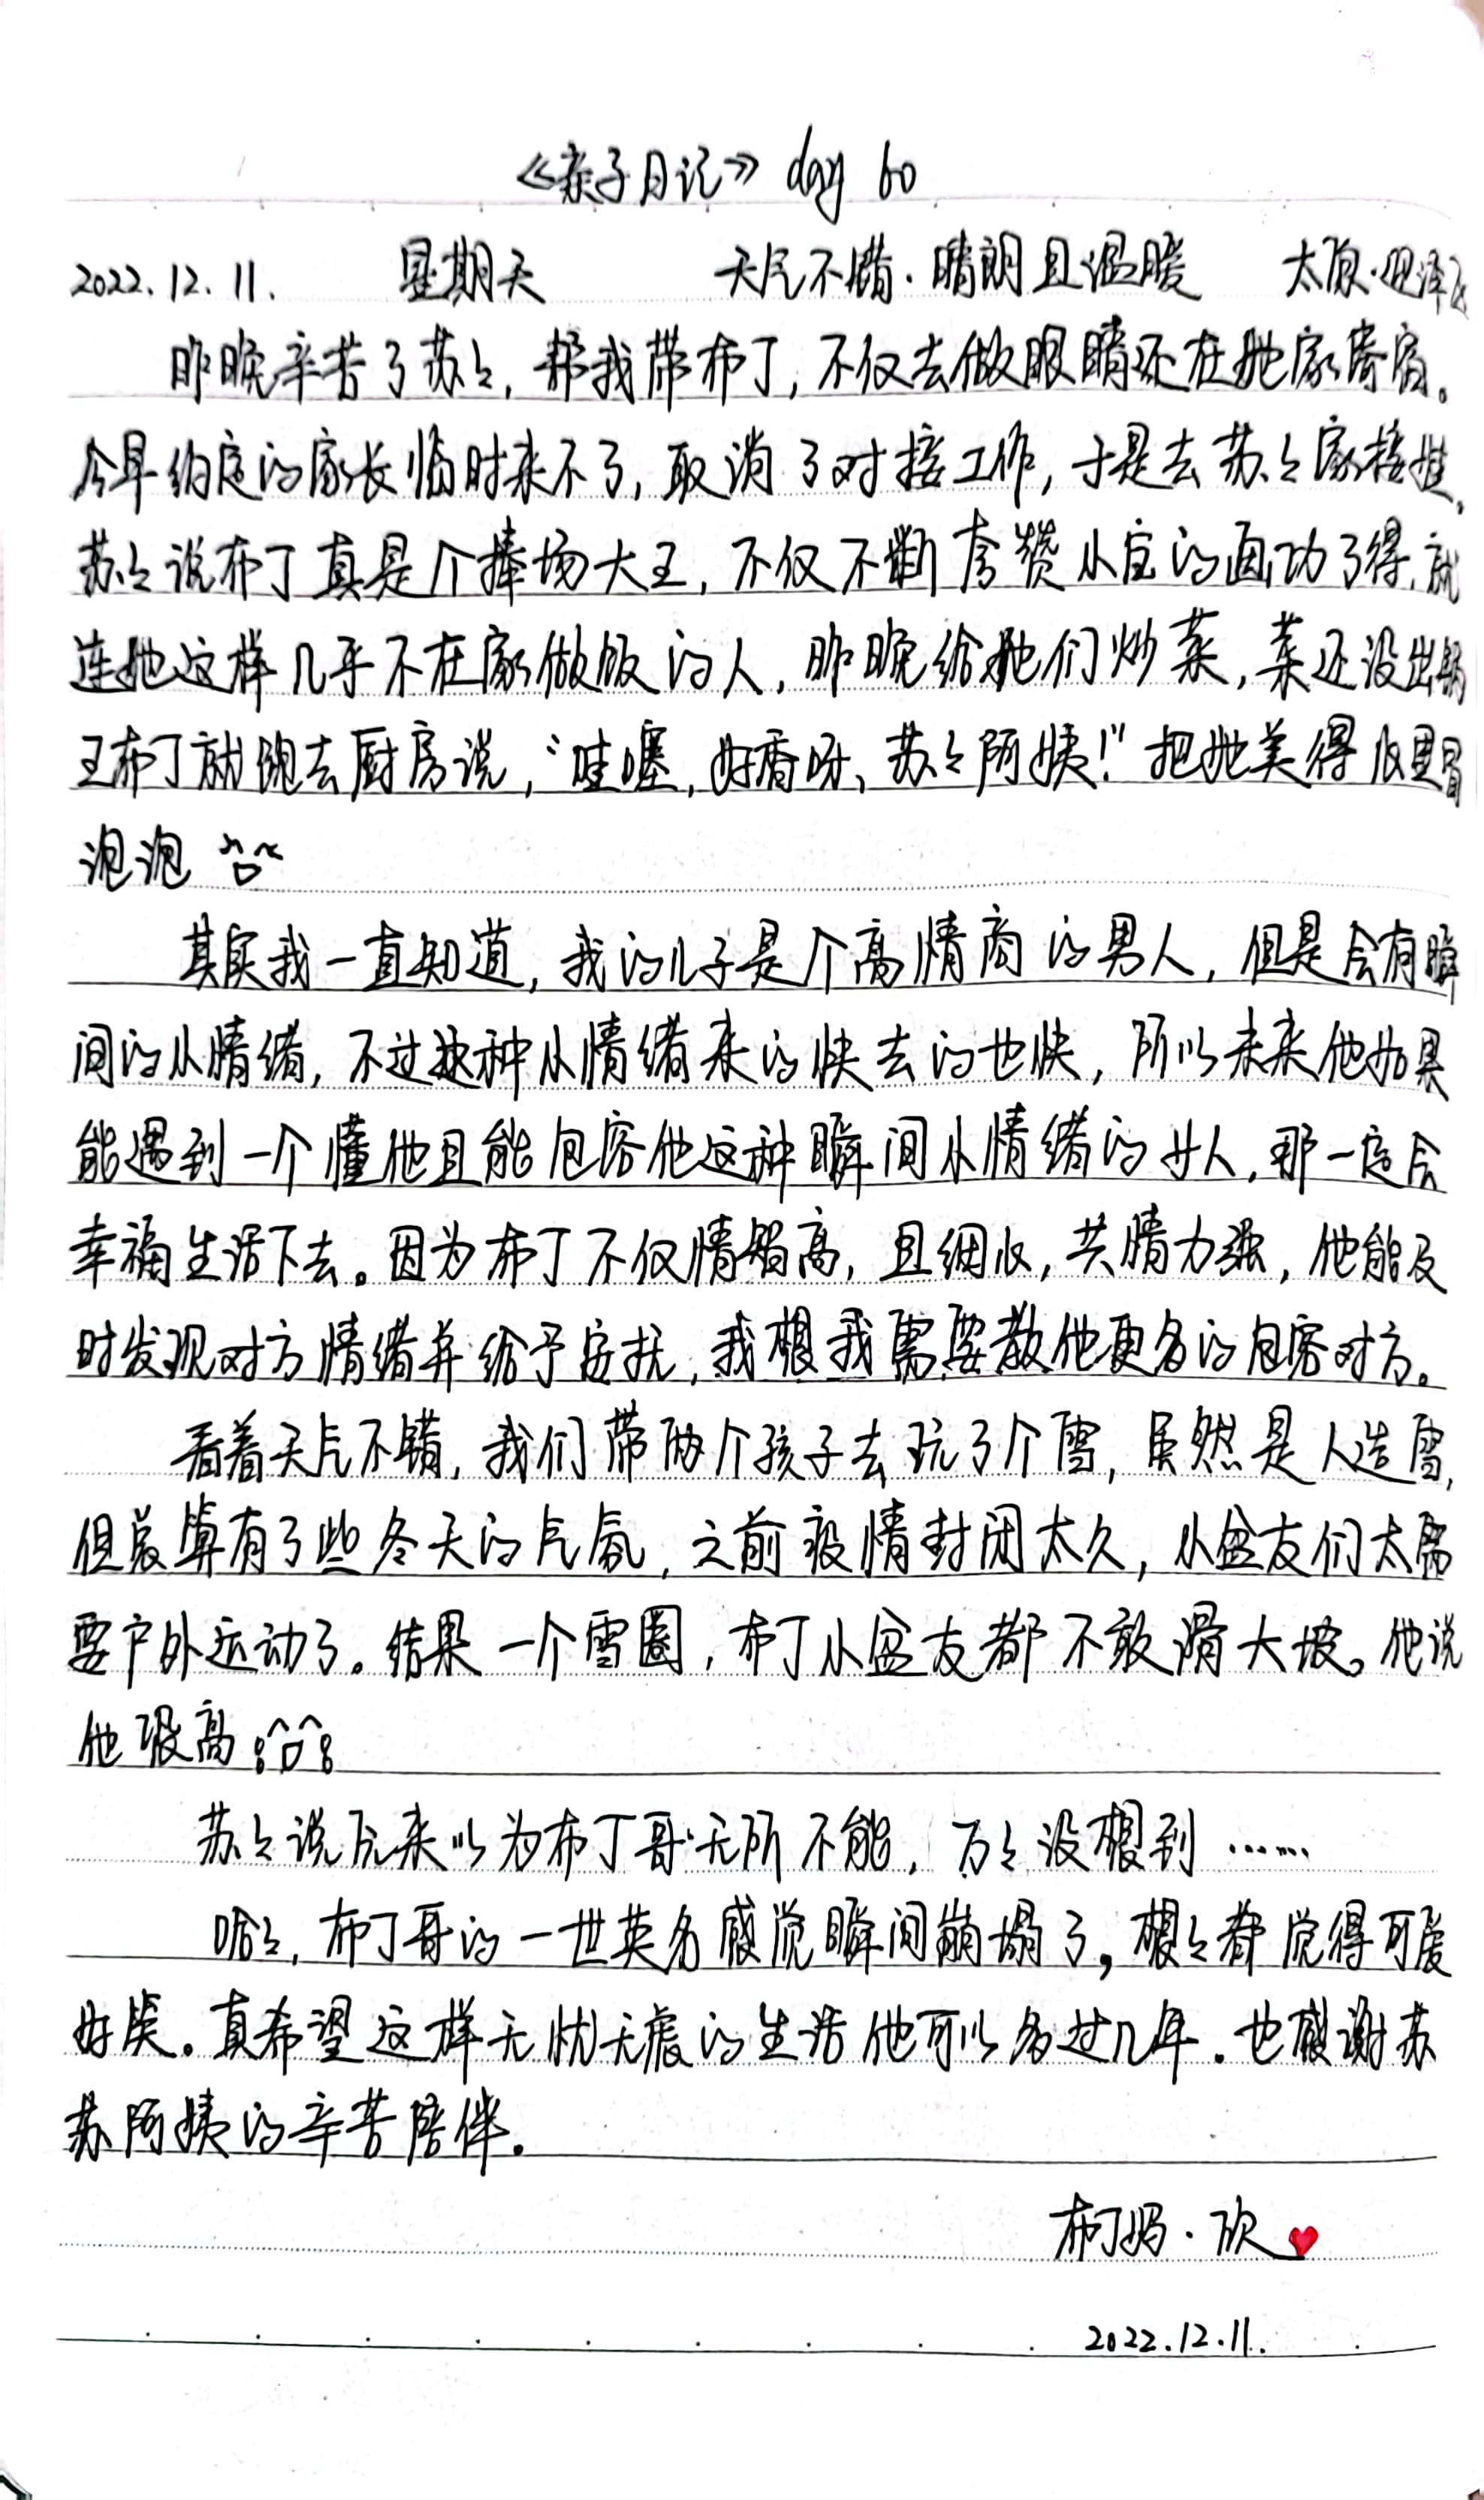 《亲子日记》day 60
2022.12.11. 星期天 天气不错.晴朗且温暖 太原·迎泽区
昨晚辛苦了苏々,帮我带布丁,不仅去做眼睛还在她家寄宿。
今早约定的家长临时来不了,取消了对接工作,于是去苏々家接娃,
苏々说布丁真是个捧场大王,不仅不断夸赞小宝的画功了得,就
连她这样几乎不在家做饭的人,昨晚给她们炒菜,菜还没出锅
王布丁就跑去厨房说,“哇噻,好香呀、苏々阿姨!”把她美得心里冒
泡泡
其实我一直知道,我的儿子是个高情商的男人,但是会有瞬
间的小情绪,不过这种小情绪来的快去的也快,所以未来他如果
能遇到一个懂他且能包容他这种瞬间小情绪的女人,那一定会
幸福生活下去。因为布丁不仅情商高,且细心,共情力强,他能及
时发现对方情绪并给予安抚,我想我需要教他更多的包容对方。
看着天气不错,我们带两个孩子去玩了个雪,虽然是人造雪,
但总算有了些冬天的气氛,之前疫情封闭太久,小盆友们太需
要户外运动了。结果一个雪圈,布丁小盆友都不敢滑大坡。他说
他恐高
苏々说原来以为布丁哥无所不能,万々没想到……
哈々,布丁哥的一世英名感觉瞬间崩塌了,想々都觉得可爱
好笑。真希望这样无忧无虑的生活他可以多过几年.也感谢苏
苏阿姨的辛苦陪伴.
布丁妈·欣
2022.12.11.